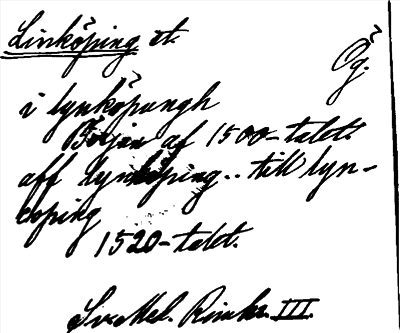 Linköping st. Ög.
i lynköpungh
Början af 1500-talet.
aff lynköping.. till lyn-
coping
1520-talet.
Sv. Med. Rimkr. III.